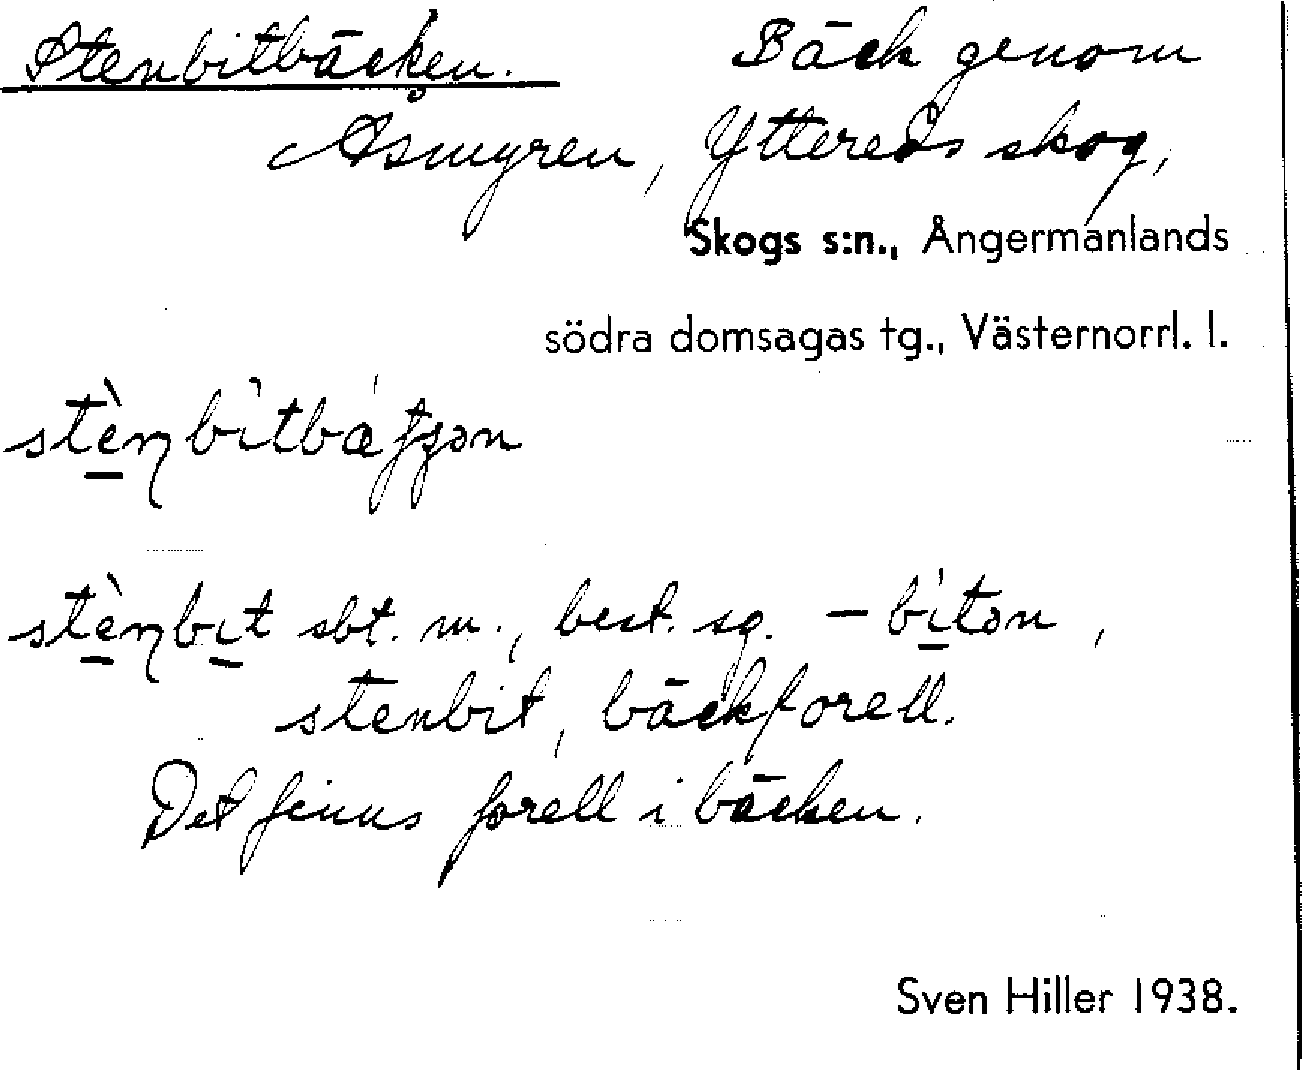 Stenbitbäcken. Bäck genom
Åsmyren, Yttereds skog,
Skogs s:n., Ångermanlands
södra domsagas tg., Västernorrl. l.
stènbitbæ
stènbit sbt. m., best. sg. – bitən,
stenbit, bäckforell.
Det finns forell i bäcken.
Sven Hiller 1938.